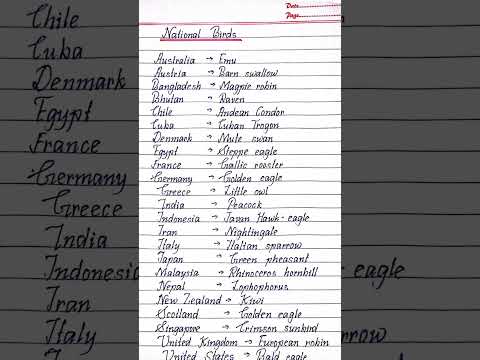 Date
Page
National Birds
Australia → Emu
Austria → Barn swallow
Bangladesh → Magpie robin
Bhutan → Raven
Chile → Andean Condor
Cuba → Cuban Trogon
Denmark → Mute swan
Egypt → Steppe eagle
France → Gallic rooster
Germany → Golden eagle
Greece → Little owl
India → Peacock
Indonesia → Javan Hawk-eagle
Iran → Nightingale
Italy → Italian sparrow
Japan → Green pheasant
Malaysia → Rhinoceros hornbill
Nepal → Lophophorus
New Zealand → Kiwi
Scotland → Golden eagle
Singapore → Crimson sunbird
United Kingdom → European robin
United States → Bald eagle
Chile
Cuba
Denmark
Egypt
France
Germany
Greece
India
Indonesia
Iran
Italy
eagle
row